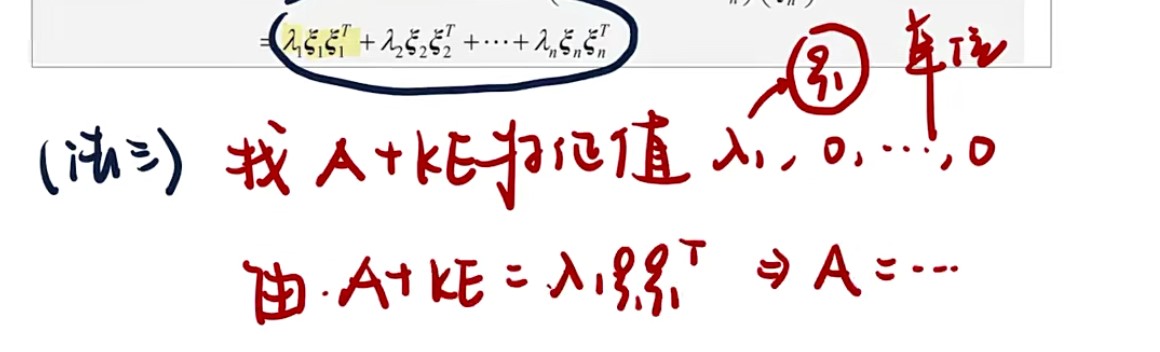 = λ₁ξ₁ξ₁ᵀ + λ₂ξ₂ξ₂ᵀ + ⋯ + λₙξₙξₙᵀ
ξ₁ 单位
(法三) 找 A+kE 特征值 λ₁, 0, ⋯, 0
由. A+kE = λ₁ξ₁ξ₁ᵀ ⇒ A = ⋯